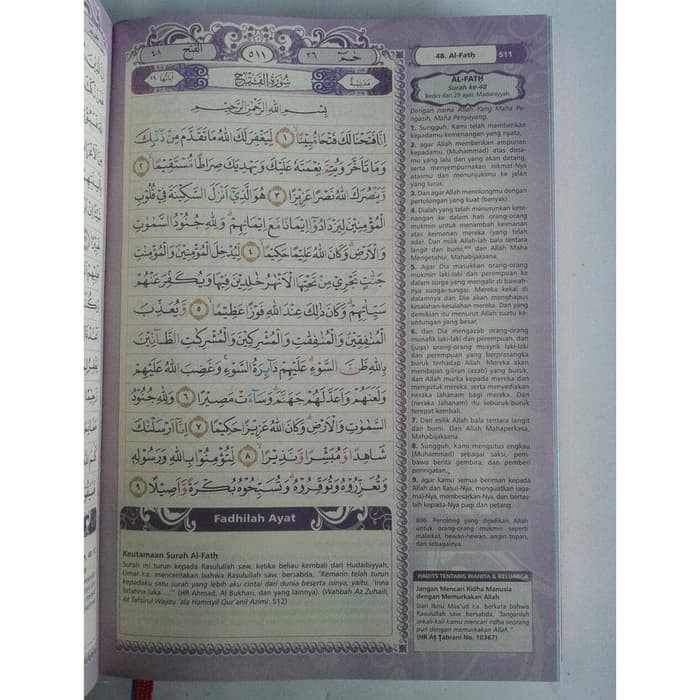 ٤٨ الفتح
٥١١
حم ٢٦
48. Al-Fatḥ 511
اياتها ٢٩
سورة الفتح
مدنية
بسم الله الرحمن الرحيم
انا فتحنا لك فتحا مبينا ١ ليغفر لك الله ما تقدم من ذنبك
وما تاخر ويتم نعمته عليك ويهديك صراطا مستقيما ٢
وينصرك الله نصرا عزيزا ٣ هو الذي انزل السكينة في قلوب
المؤمنين ليزدادوا ايمانا مع ايمانهم ولله جنود السموت
والارض وكان الله عليما حكيما ٤ ليدخل المؤمنين والمؤمنت
جنت تجري من تحتها الانهر خلدين فيها ويكفر عنهم
سياتهم وكان ذلك عند الله فوزا عظيما ٥ ويعذب
المنفقين والمنفقت والمشركين والمشركت الظانين
بالله ظن السوء عليهم دايرة السوء وغضب الله عليهم
ولعنهم واعد لهم جهنم وساءت مصيرا ٦ ولله جنود
السموت والارض وكان الله عزيزا حكيما ٧ انا ارسلنك
شاهدا ومبشرا ونذيرا ٨ لتؤمنوا بالله ورسوله
وتعزروه وتوقروه وتسبحوه بكرة واصيلا ٩
Fadhilah Ayat
Keutamaan Surah Al-Fatḥ
Surah ini turun kepada Rasulullah saw. ketika beliau kembali dari Hudaibiyyah,
Umar r.a. menceritakan bahwa Rasulullah saw. bersabda, "Kemarin telah turun
kepadaku satu surah yang lebih aku cintai dari dunia beserta isinya, yaitu, 'Inna
fatahna laka ....'" (HR Ahmad, Al Bukhari, dan yang lainnya). (Wahbah Az Zuhaili,
At Tafsirul Wajizu 'ala Hamisyil Qur'anil Azimi: 512)
AL-FATḤ
Surah ke-48
Terdiri dari 29 ayat. Madaniyyah.
Dengan nama Allah Yang Maha Pe-
ngasih, Maha Penyayang.
1. Sungguh, Kami telah memberikan
kepadamu kemenangan yang nyata,
2. agar Allah memberikan ampunan
kepadamu (Muhammad) atas dosa-
mu yang lalu dan yang akan datang,
serta menyempurnakan nikmat-Nya
atasmu dan menunjukimu ke jalan
yang lurus,
3. Dan agar Allah menolongmu dengan
pertolongan yang kuat (banyak)
4. Dialah yang telah menurunkan kete-
nangan ke dalam hati orang-orang
mukmin untuk menambah keimanan
atas keimanan mereka (yang telah
ada). Dan milik Allah-lah bala tentara
langit dan bumi, dan Allah Maha
Mengetahui, Mahabijaksana.
5. Agar Dia masukkan orang-orang
mukmin laki-laki dan perempuan ke
dalam surga yang mengalir di bawah-
nya sungai-sungai. Mereka kekal di
dalamnya dan Dia akan menghapus
kesalahan-kesalahan mereka. Dan yang
demikian itu menurut Allah suatu ke-
untungan yang besar.
6. dan Dia mengazab orang-orang
munafik laki-laki dan perempuan, dan
(juga) orang-orang musyrik laki-laki
dan perempuan yang berprasangka
buruk terhadap Allah. Mereka akan
mendapat giliran (azab) yang buruk,
dan Allah murka kepada mereka dan
mengutuk mereka, serta menyediakan
neraka Jahanam bagi mereka. Dan
(neraka Jahanam) itu seburuk-buruk
tempat kembali.
7. Dan milik Allah bala tentara langit
dan bumi. Dan Allah Mahaperkasa,
Mahabijaksana
8. Sungguh, Kami mengutus engkau
(Muhammad) sebagai saksi, pem-
bawa berita gembira, dan pemberi
peringatan,
9. agar kamu semua beriman kepada
Allah dan Rasul-Nya, menguatkan (aga-
ma)-Nya, membesarkan-Nya, dan bertas-
bih kepada-Nya pagi dan petang.
806. Penolong yang dijadikan Allah
untuk orang-orang mukmin seperti
malaikat, hewan-hewan, angin topan,
dan sebagainya.
HADITS TENTANG WANITA & KELUARGA
Jangan Mencari Ridha Manusia
dengan Memurkakan Allah
Dari Ibnu Mas'ud r.a. berkata bahwa
Rasulullah saw. bersabda, "Janganlah
sekali-kali kamu mencari ridha seorang
pun dengan memurkakan Allah."
(HR Aṭ Ṭabrani No. 10367)